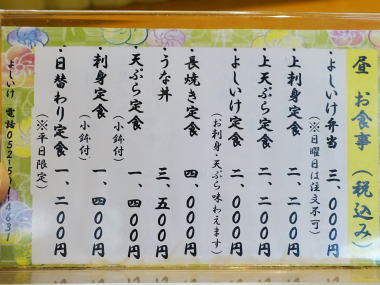 昼 お食事 (税込み)
・よしいけ弁当 三、〇〇〇円
(※日曜日は注文不可)
・上刺身定食 二、二〇〇円
・上天ぷら定食 二、二〇〇円
・よしいけ定食 二、〇〇〇円
(お刺身・天ぷら味わえます)
・長焼き定食 四、〇〇〇円
うな丼 三、五〇〇円
・天ぷら定食 一、四〇〇円
(小鉢付)
・刺身定食 一、四〇〇円
(小鉢付)
・日替わり定食 一、二〇〇円
(※平日限定)
よしいけ 電話